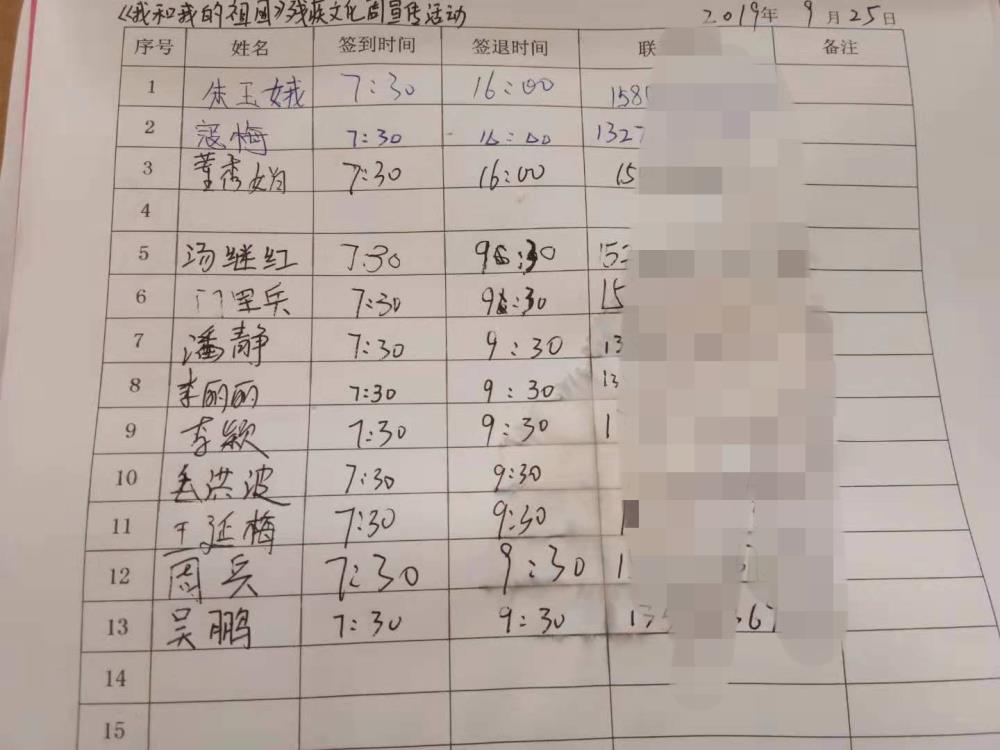 《我和我的祖国》残疾文化周宣传活动 2019年9月25日
序号 姓名 签到时间 签退时间 联 备注
1 朱玉娥 7:30 16:00 158
2 寇梅 7:30 16:00 1327
3 董秀娟 7:30 16:00 15
4
5 汤继红 7:30 9:30 152
6 门里兵 7:30 9:30 15
7 潘静 7:30 9:30 13
8 李丽丽 7:30 9:30 13
9 李颖 7:30 9:30 1
10 洪波 7:30 9:30
11 王延梅 7:30 9:30 1
12 周兵 7:30 9:30 1
13 吴鹏 7:30 9:30 13 67
14
15